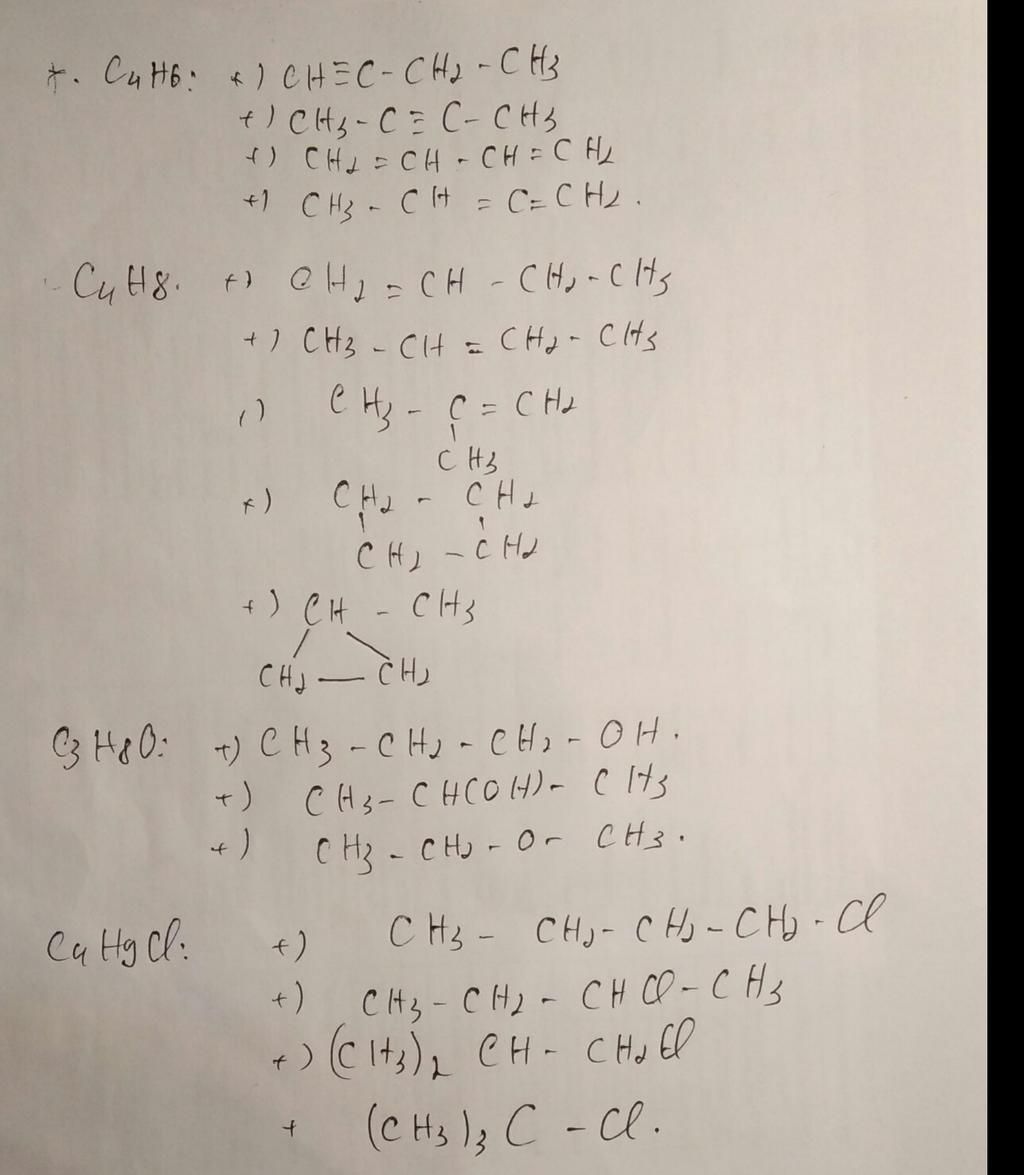 *. C4H6: +) CH≡C-CH2-CH3
+) CH3-C≡C-CH3
+) CH2=CH-CH=CH2
+) CH3-CH=C=CH2.
C4H8. +) CH2=CH-CH2-CH3
+) CH3-CH=CH2-CH3
+) CH3-C=CH2
CH3
+) CH2-CH2
CH2-CH2
+) CH-CH3
CH2—CH2
C3H8O: +) CH3-CH2-CH2-OH.
+) CH3-CH(OH)-CH3
+) CH3-CH2-O-CH3.
C4H9Cl: +) CH3-CH2-CH2-CH2-Cl
+) CH3-CH2-CHCl-CH3
+) (CH3)2CH-CH2Cl
+ (CH3)3C-Cl.